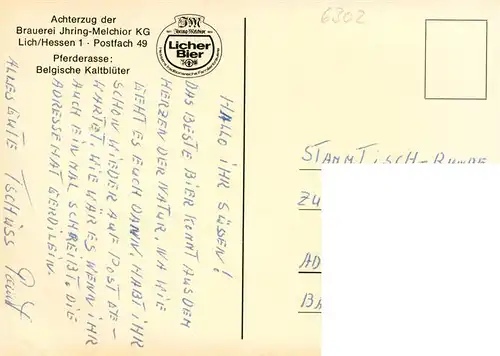 Achterzug der
Brauerei Jhring-Melchior KG
Lich/Hessen 1 · Postfach 49
Pferderasse:
Belgische Kaltblüter
JM
Jhring-Melchior
Licher
Bier
6302
HALLO IHR SÜSSEN!
DAS BESTE BIER KOMMT AUS DEM
HERZEN DER NATUR. NA WIE
GEHT ES EUCH DANN, HABT IHR
SCHON WIEDER AUF POST GE-
WARTET. WIE WÄR ES WENN IHR
AUCH EINMAL SCHREIBT. DIE
ADRESSE HAT GERD
ALLES GUTE TSCHÜSS
STAMMTISCH-RUNDE
ZU
AD
BA